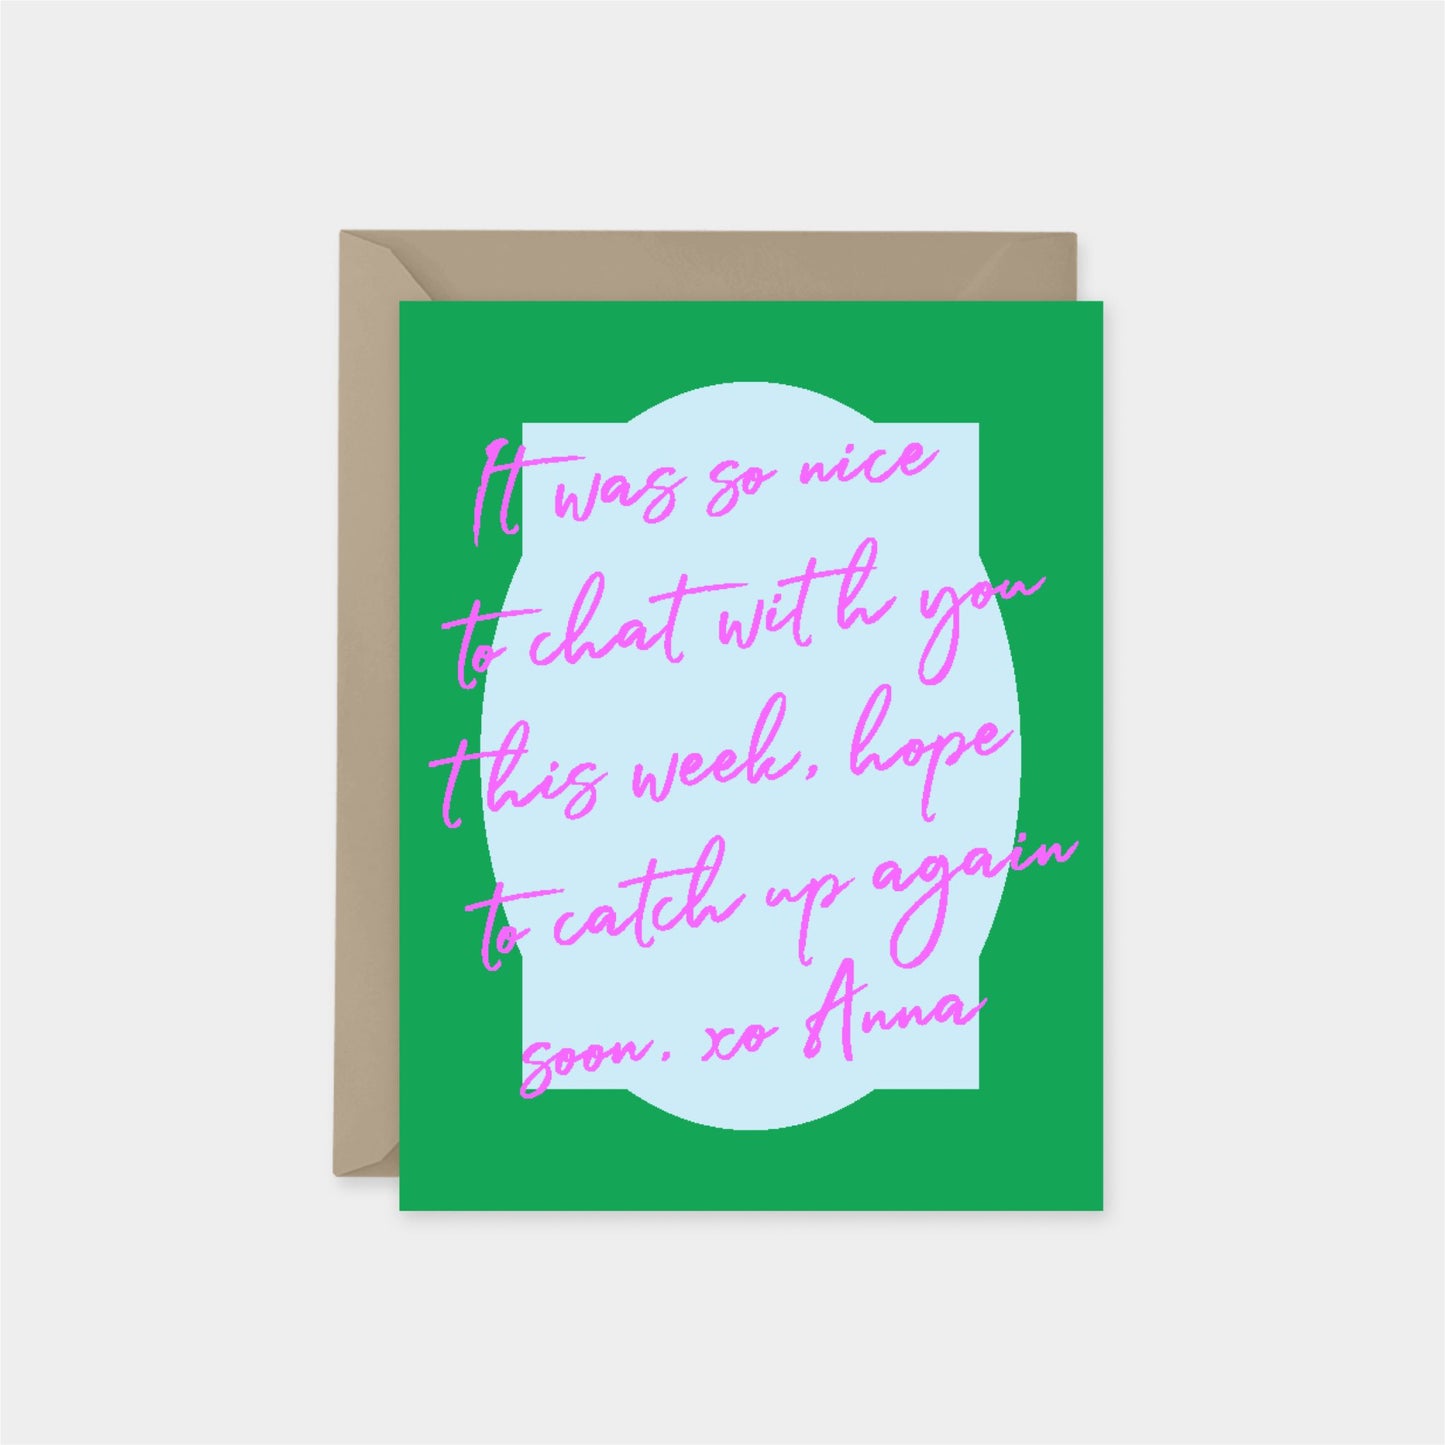 It was so nice
to chat with you
this week, hope
to catch up again
soon. xo Anna